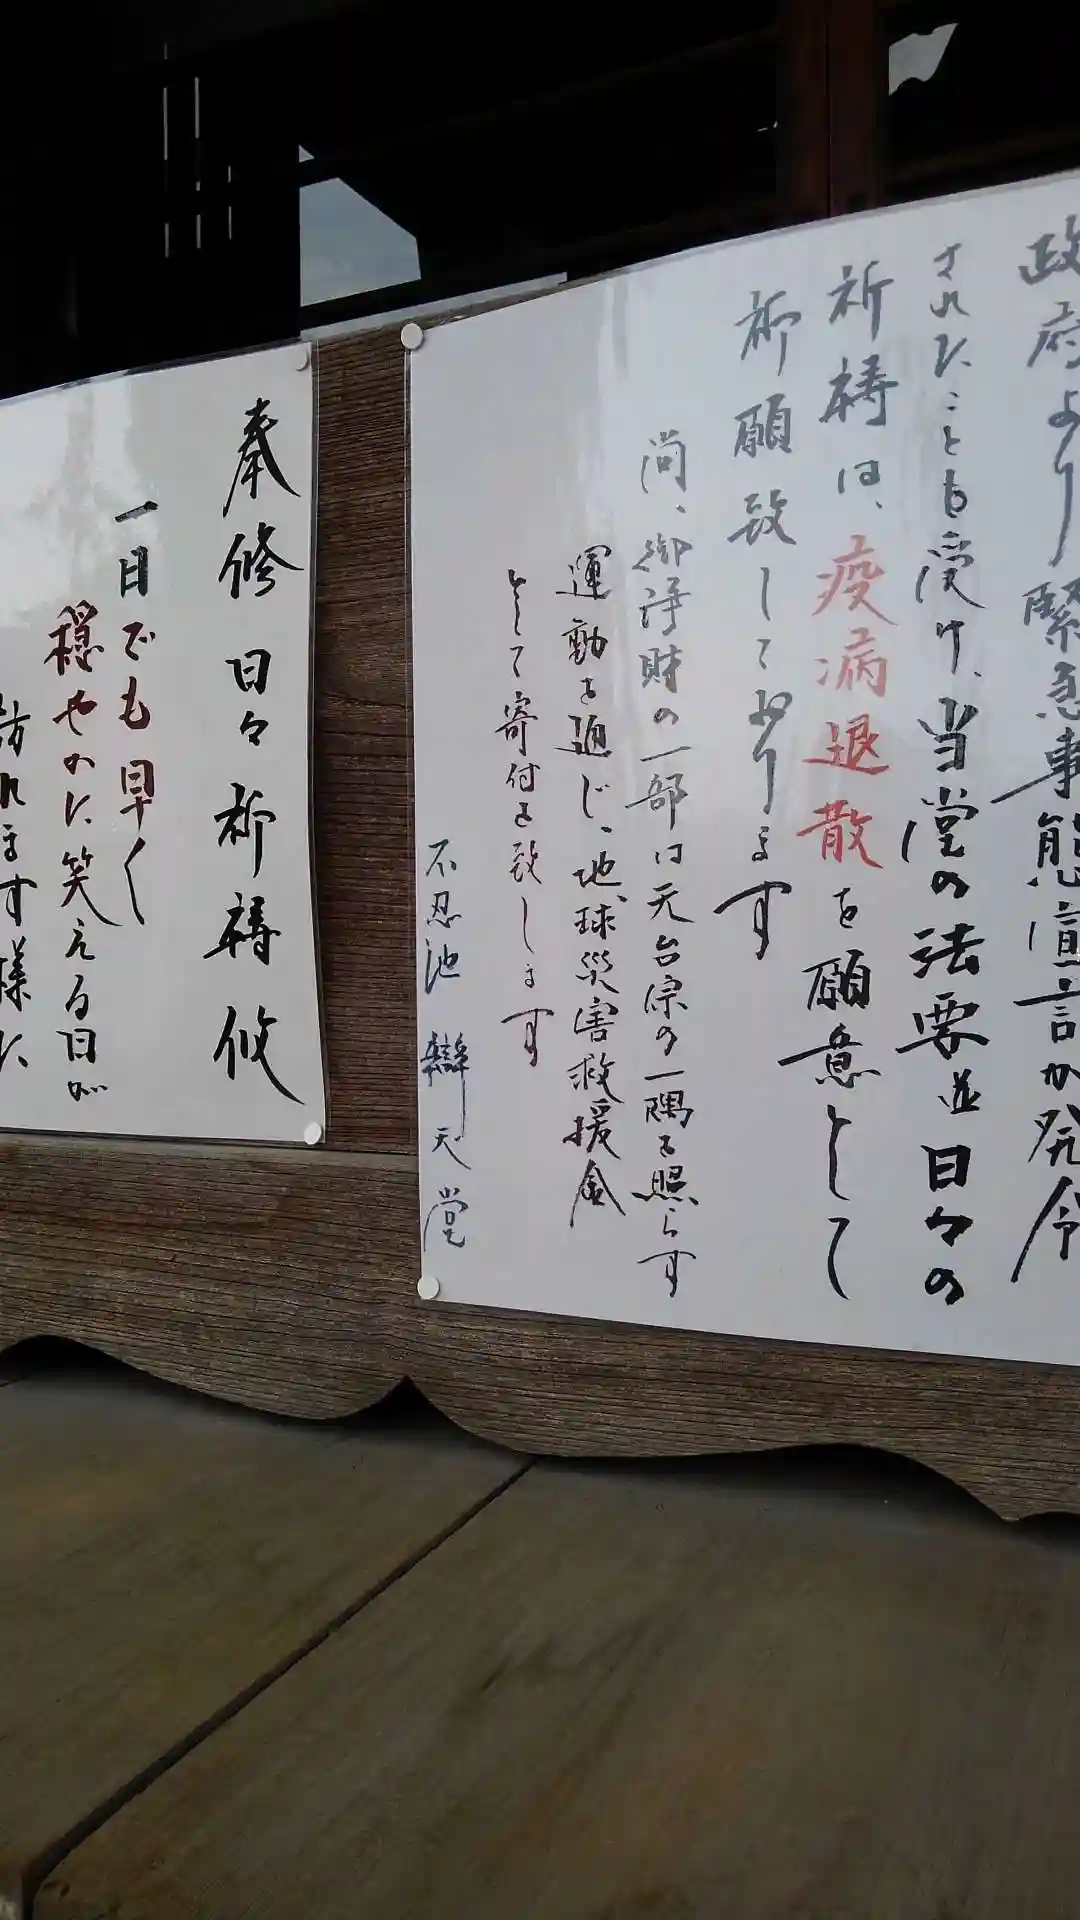 政府より緊急事態宣言が発令
されたことも受け、当堂の法要並日々の
祈祷は、疫病退散を願意として
祈願致しております
尚、御浄財の一部は天台宗の一隅を照らす
運動を通じ、地球災害救援金
として寄付を致します
不忍池 辯天堂
奉修 日々祈祷攸
一日でも早く
穏やかに笑える日が
訪れます様に